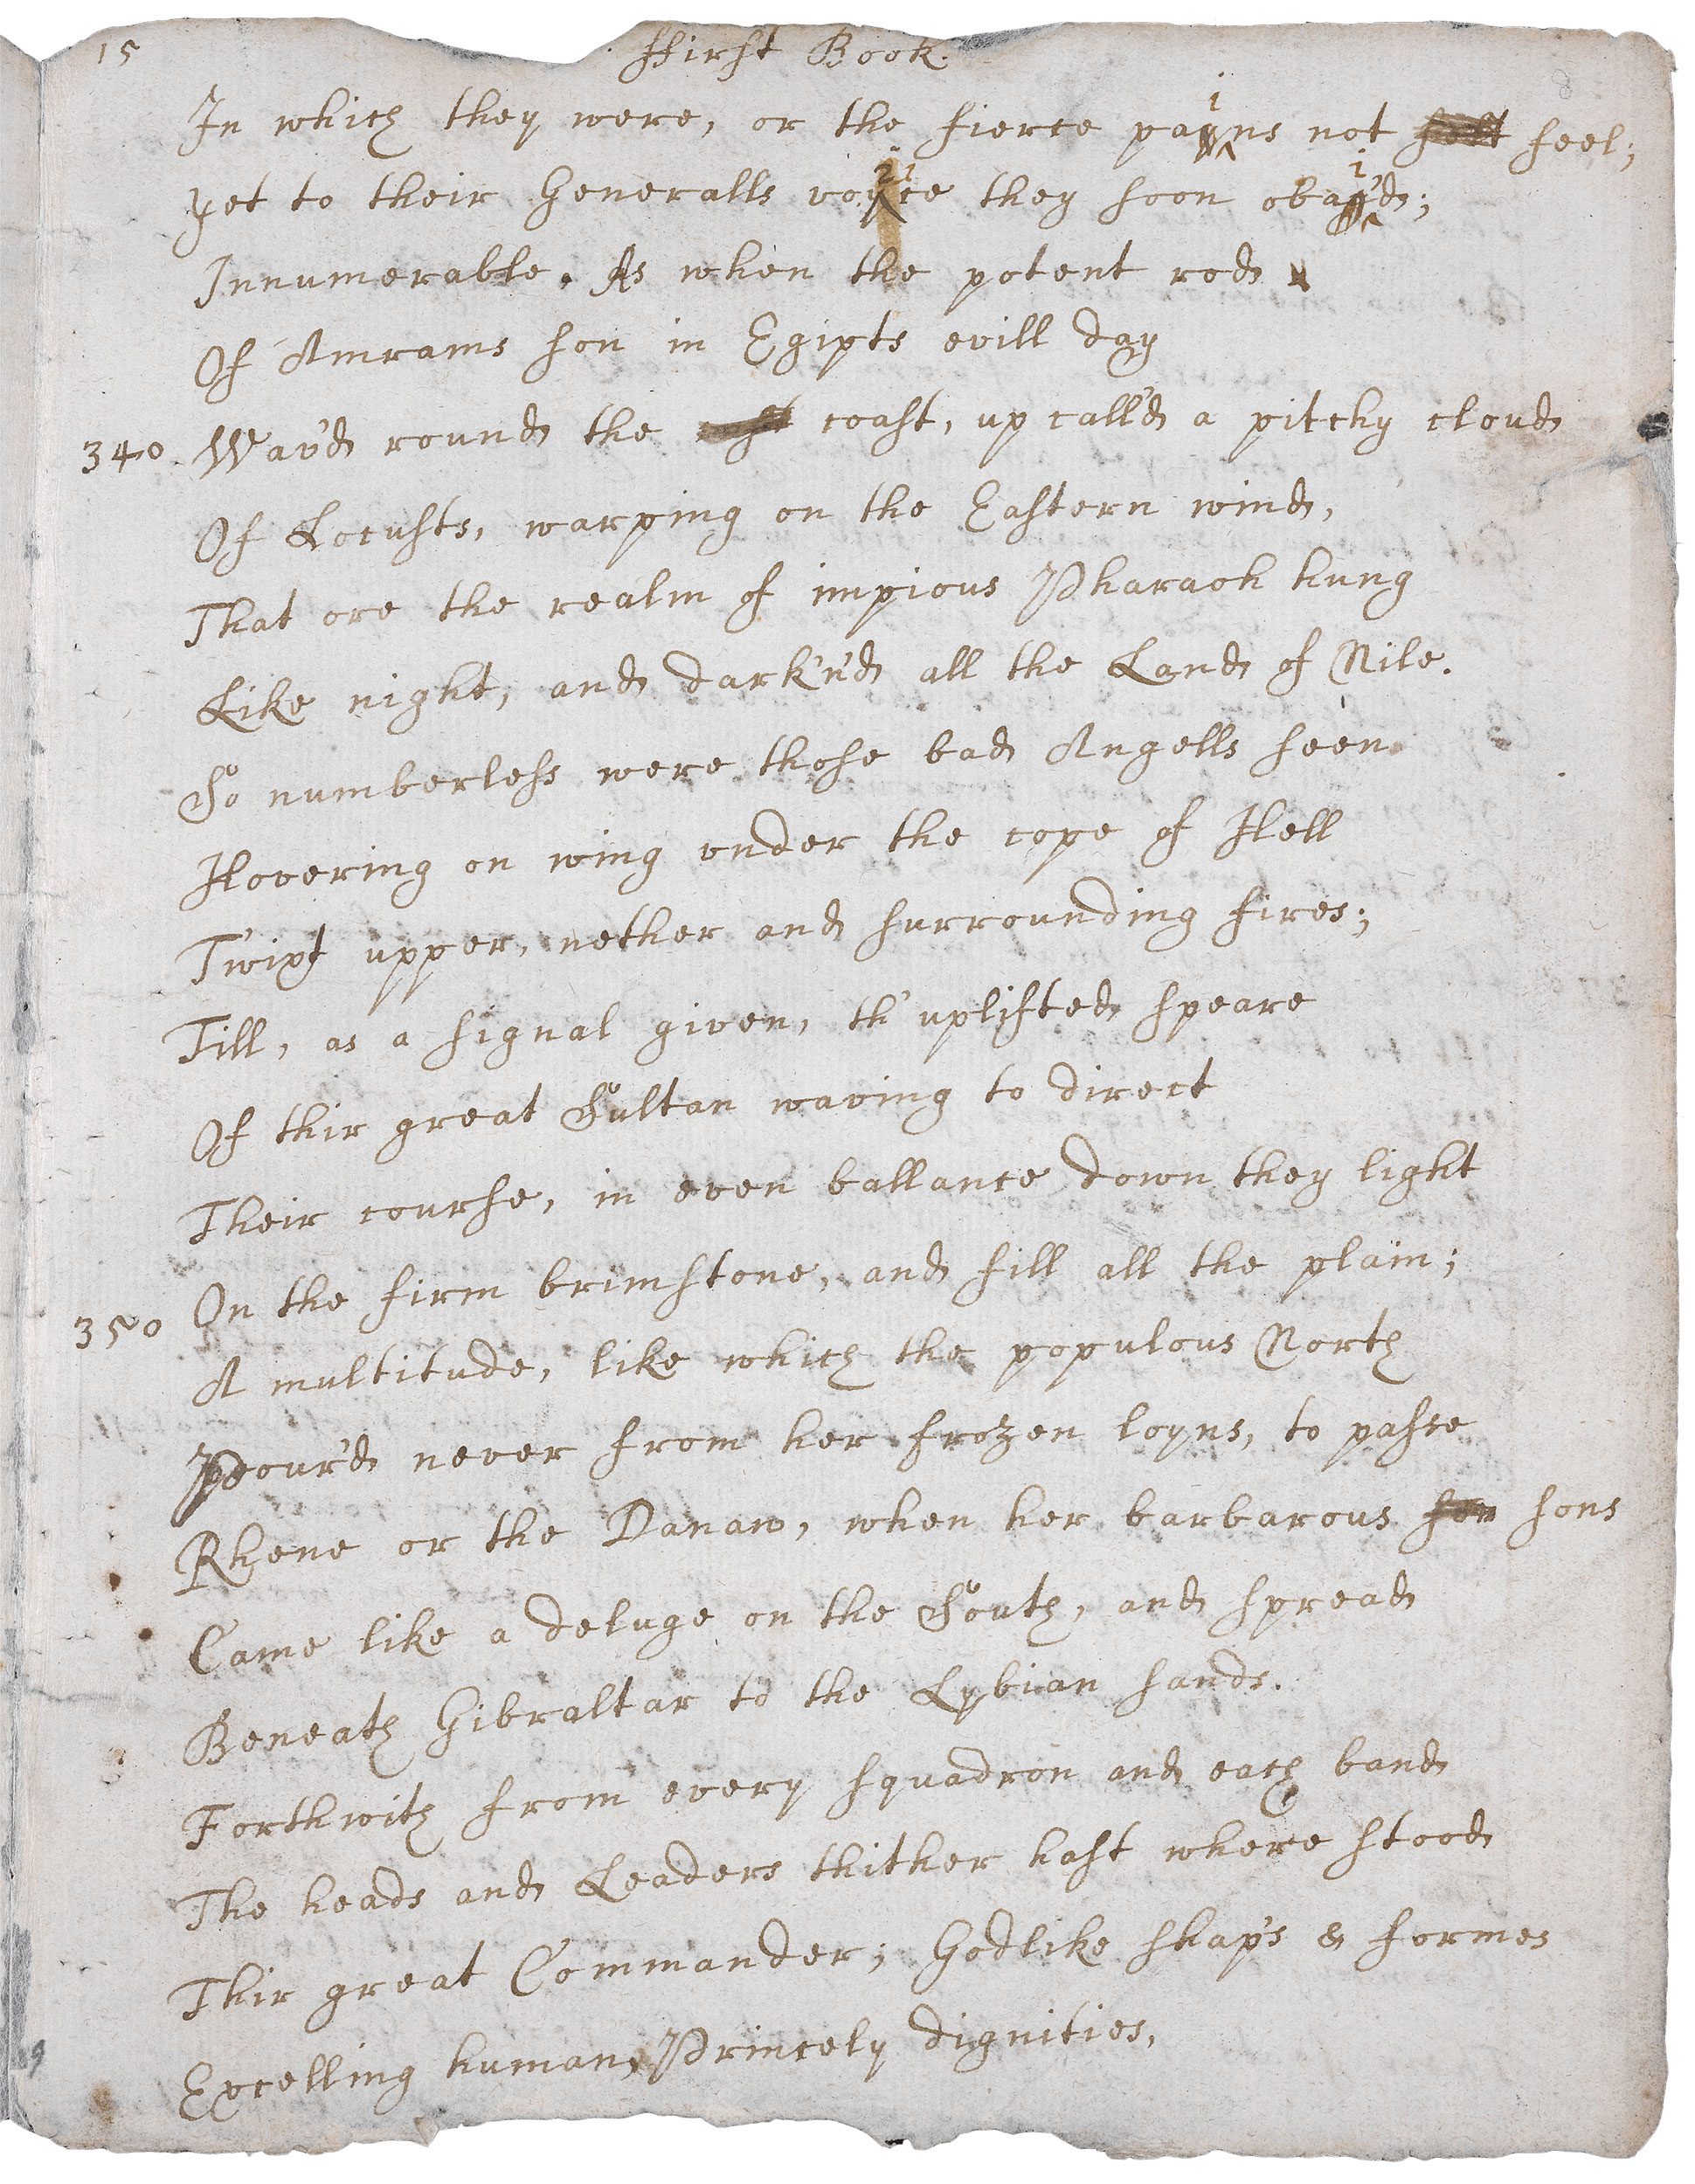 15 ffirst Book.
In which they were, or the fierce pains not feel;
Yet to their Generalls voice they soon obai'd;
Innumerable. As when the potent rod
Of Amrams son in Egipts evill day
340 Wav'd round the coast, up call'd a pitchy cloud
Of Locusts, warping on the Eastern wind,
That ore the realm of impious Pharaoh hung
Like night, and dark'n'd all the Land of Nile.
So numberless were those bad Angells seen
Hovering on wing under the cope of Hell
Twixt upper, nether and surrounding fires;
Till, as a signal given, th' uplifted speare
Of thir great Sultan waving to direct
Their course, in even ballance down they light
On the firm brimstone, and fill all the plain;
350 A multitude, like which the populous North
Pour'd never from her frozen loyns, to passe
Rhene or the Danaw, when her barbarous sons
Came like a deluge on the South, and spread
Beneath Gibraltar to the Lybian sands.
Forthwith from every squadron and each band
The heads and Leaders thither hast where stood
Thir great Commander; Godlike shap's & formes
Excelling human, Princely dignities,
9